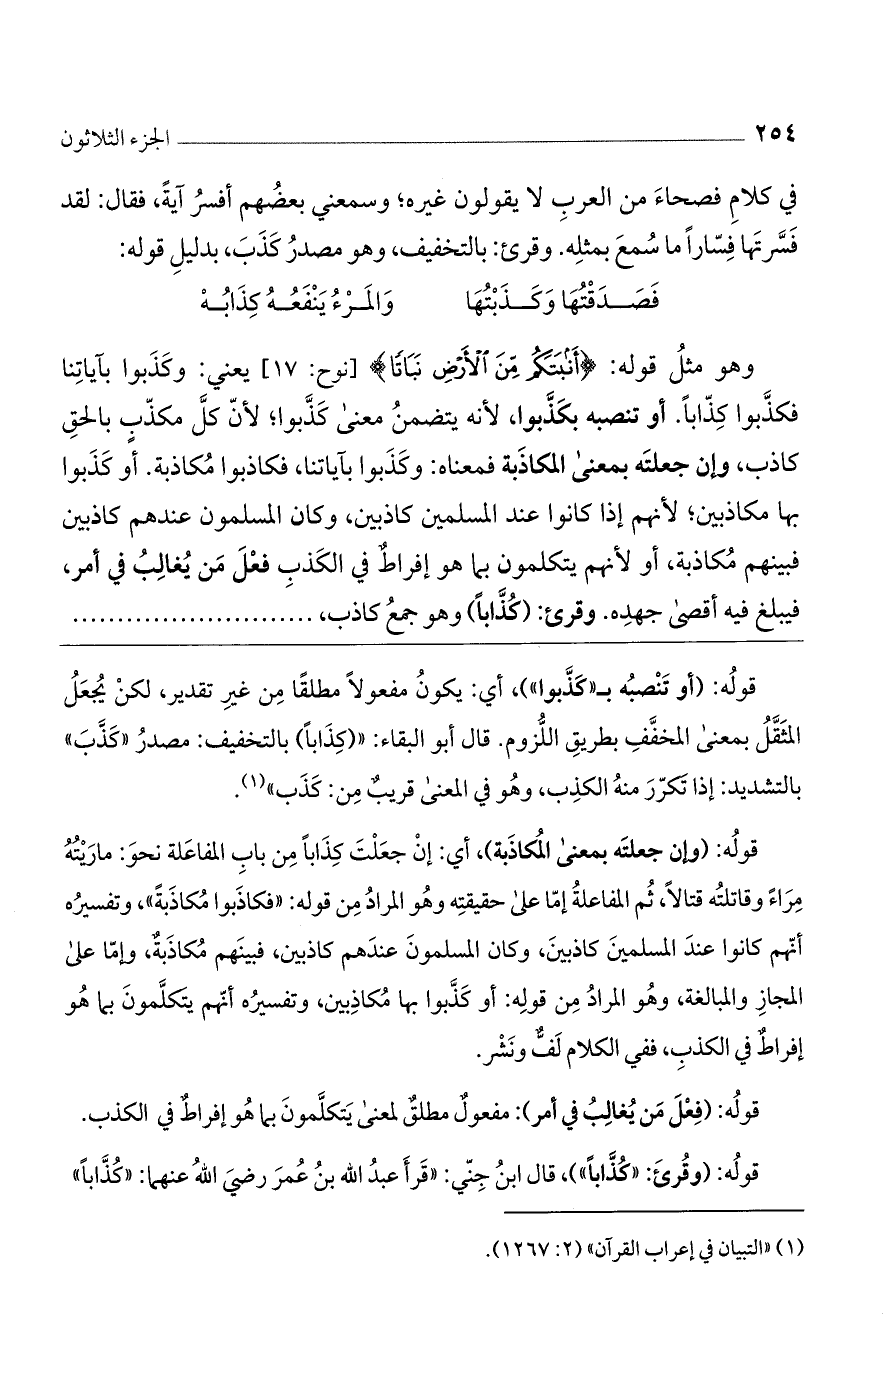 ٢٥٤ ــــــــــــــــــــ الجزء الثلاثون
في كلامِ فصحاءَ من العربِ لا يقولون غيره؛ وسمعني بعضُهم أفسرُ آيةً، فقال: لقد
فَسَّرتَها فِسّاراً ما سُمعَ بمثلِه. وقرئ: بالتخفيف، وهو مصدرُ كَذَبَ، بدليلِ قوله:
فَصَــدَقْتُهَا وَكَــذَبْتُهَا وَالمَـرْءُ يَنْفَعُــهُ كِذَابُــهْ
وهو مثلُ قوله: ﴿أَنۢبَتَكُم مِّنَ ٱلْأَرْضِ نَبَاتًا﴾ [نوح: ١٧] يعني: وكَذَبوا بآياتِنا
فكذَّبوا كِذّاباً. أو تنصبه بكَذَّبوا، لأنه يتضمنُ معنىٰ كَذَّبوا؛ لأنّ كلَّ مكذّبٍ بالحقِ
كاذب، وإن جعلتَه بمعنىٰ المكاذَبة فمعناه: وكَذَبوا بآياتنا، فكاذبوا مُكاذبة. أو كَذَبوا
بها مكاذبين؛ لأنهم إذا كانوا عند المسلمين كاذبين، وكان المسلمون عندهم كاذبين
فبينهم مُكاذبة، أو لأنهم يتكلمون بما هو إفراطٌ في الكَذبِ فعْلَ مَن يُغالِبُ في أمر،
فيبلغ فيه أقصىٰ جهدِه. وقرئ: (كُذَّاباً) وهو جمعُ كاذب، ..........................
قولُه: (أو تَنْصبُه بـ«كَذَّبوا»)، أي: يكونُ مفعولاً مطلقًا مِن غيرِ تقدير، لكنْ يُجعَلُ
المثَقَّلُ بمعنىٰ المخفَّفِ بطريقِ اللُّزوم. قال أبو البقاء: «(كِذَاباً) بالتخفيف: مصدرُ «كَذَّبَ»
بالتشديد: إذا تَكرّرَ منهُ الكذِب، وهُو في المعنىٰ قريبٌ مِن: كَذَب»(١).
قولُه: (وإن جعلتَه بمعنىٰ المُكاذَبة)، أي: إنْ جعَلْتَ كِذَاباً مِن بابِ المفاعَلة نحوَ: مارَيْتُهُ
مِرَاءً وقاتلتُه قتالاً، ثُم المفاعلةُ إمّا علىٰ حقيقتِه وهُو المرادُ مِن قوله: «فكاذَبوا مُكاذَبةً»، وتفسيرُه
أنّهم كانوا عندَ المسلمينَ كاذبينَ، وكان المسلمونَ عندَهم كاذبين، فبينَهم مُكاذَبةٌ، وإمّا علىٰ
المجازِ والمبالغة، وهُو المرادُ مِن قولِه: أو كَذَّبوا بها مُكاذِبين، وتفسيرُه أنّهم يتكلَّمونَ بما هُو
إفراطٌ في الكذبِ، ففي الكلام لَفٌّ ونَشْر.
قولُه: (فِعْلَ مَن يُغالِبُ في أمر): مفعولٌ مطلقٌ لمعنىٰ يَتكلَّمونَ بما هُو إفراطٌ في الكذب.
قولُه: (وقُرئَ: «كُذَّاباً»)، قال ابنُ جِنّي: «قَرأَ عبدُ الله بنُ عُمرَ رضيَ اللهُ عنهما: «كُذَّاباً»
(١) «التبيان في إعراب القرآن» (٢: ١٢٦٧).